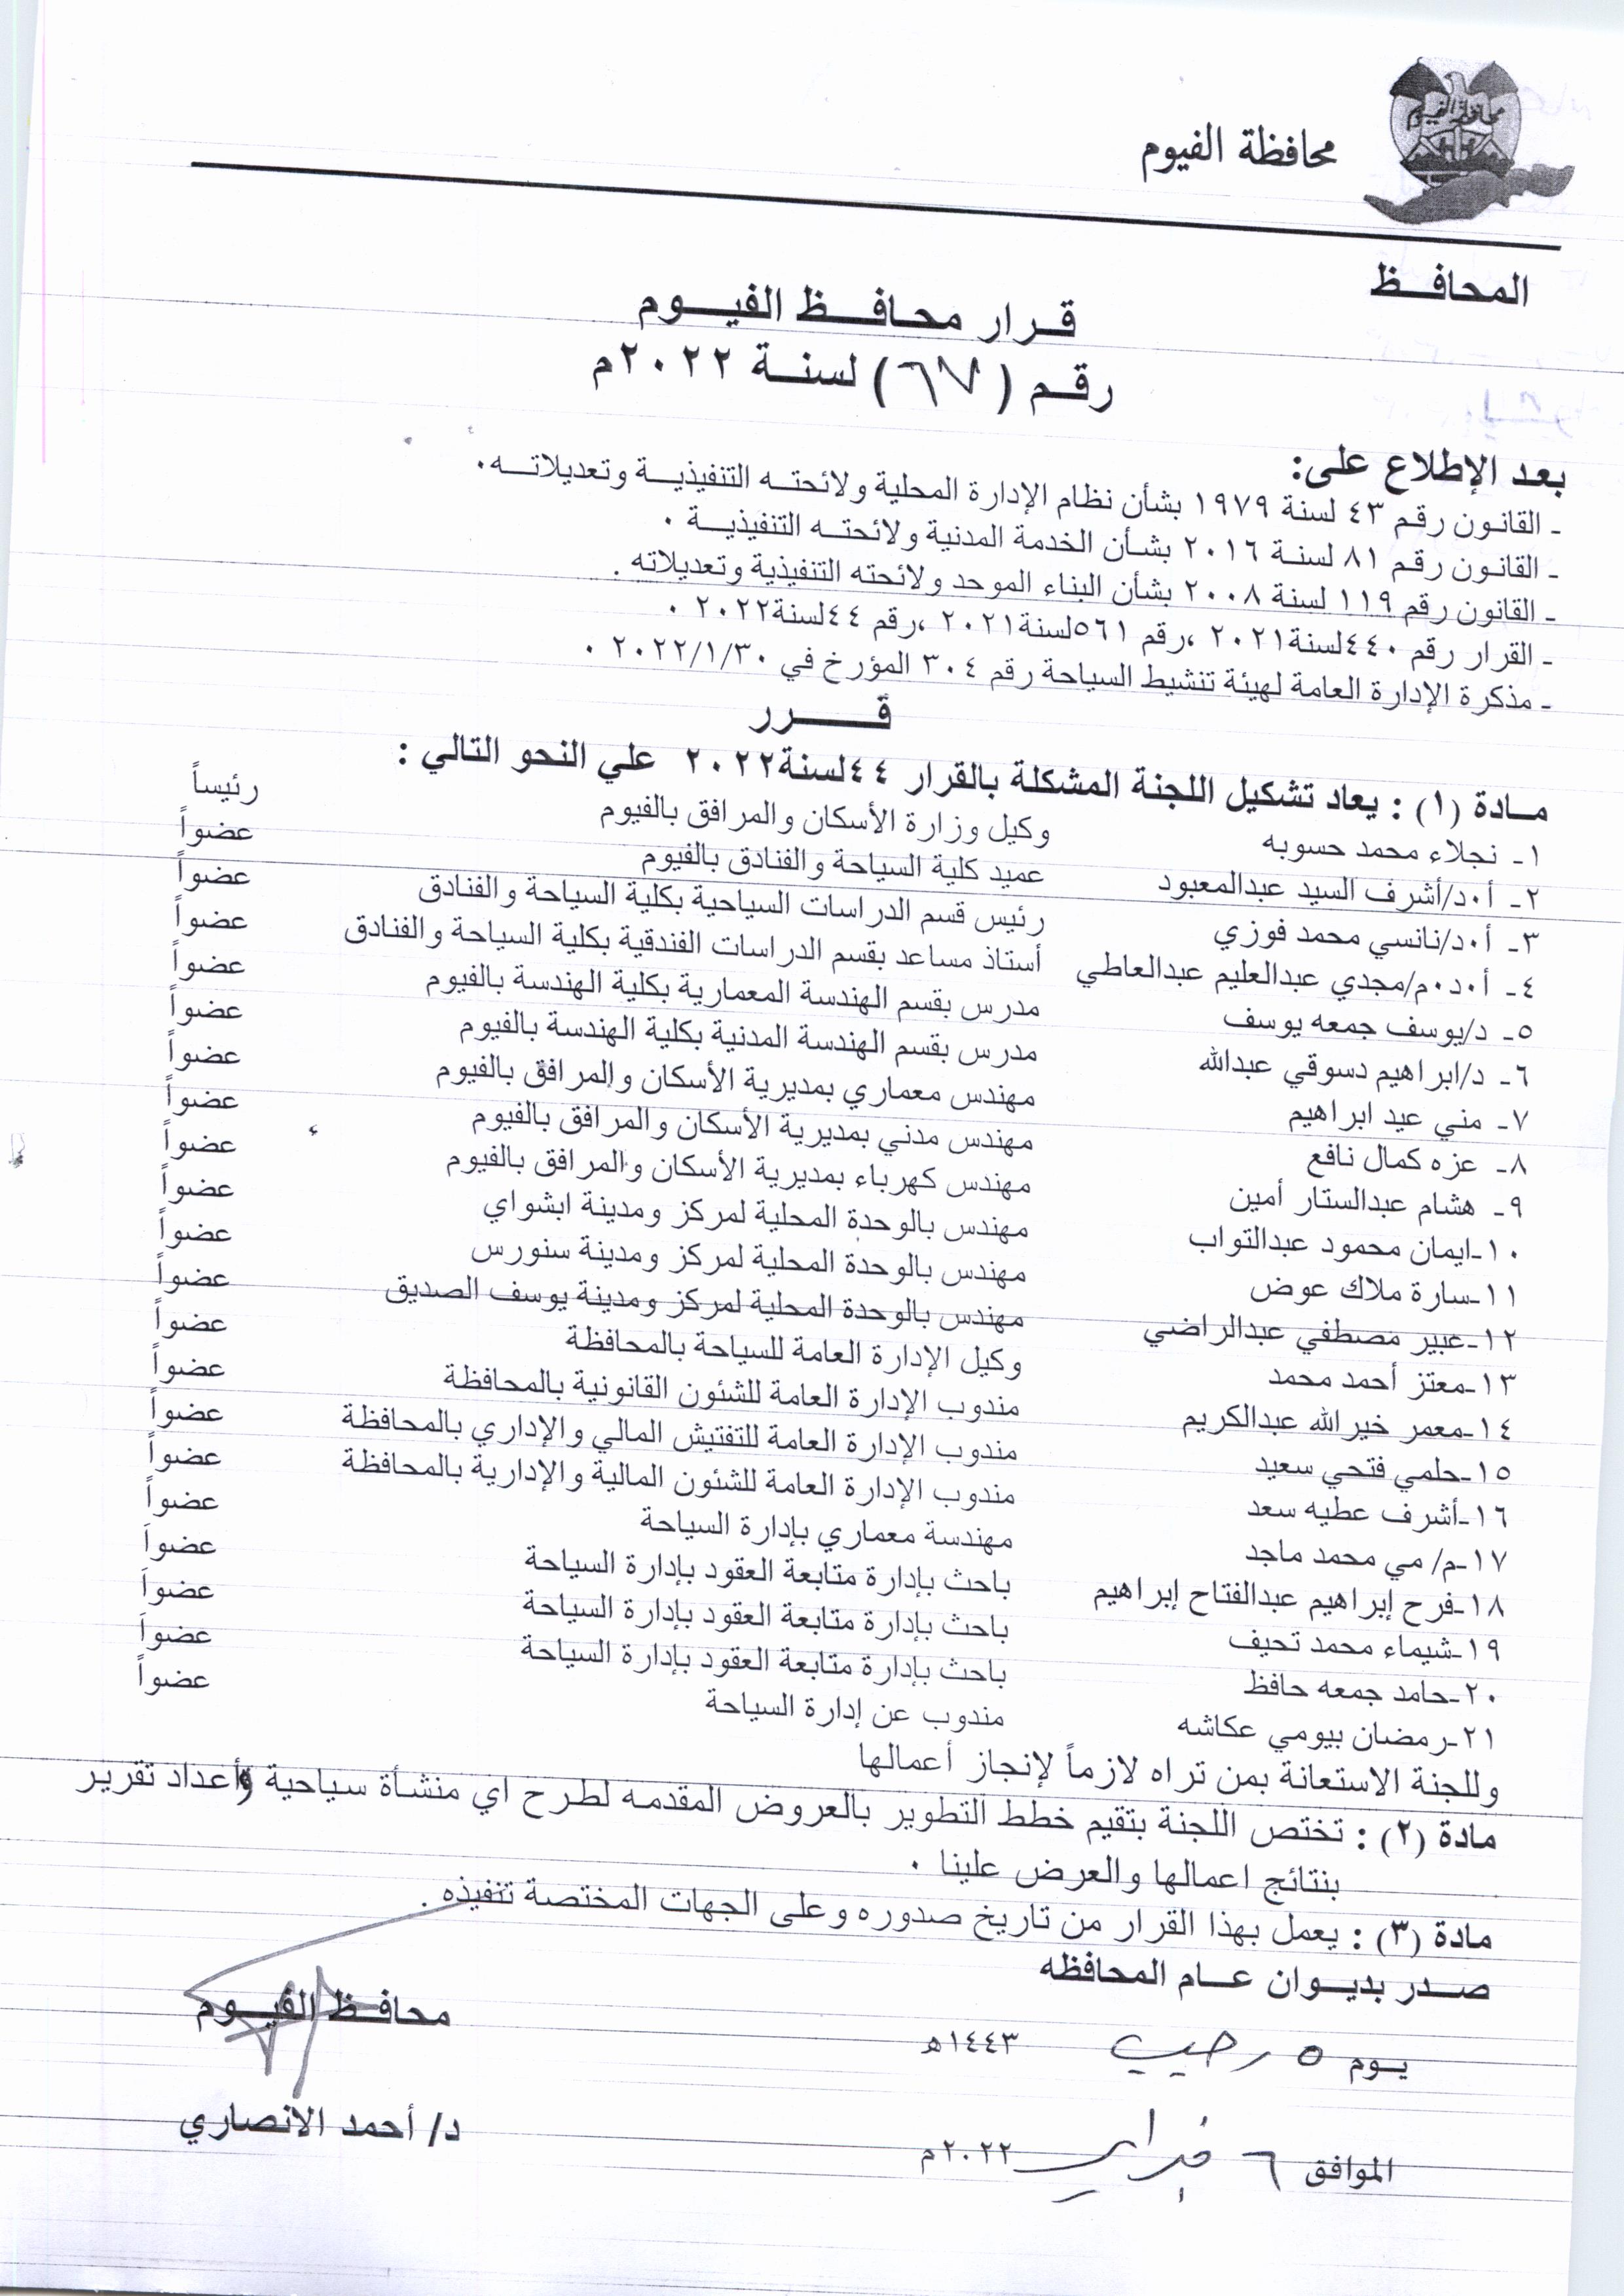 محافظة الفيوم
محافظة الفيوم
المحافـــظ
قـرار محـافـــظ الفيـــوم
رقـم ( ٦٧ ) لسنــة ٢٠٢٢م
بعد الإطلاع على:
ـ القانـون رقـم ٤٣ لسنة ١٩٧٩ بشأن نظام الإدارة المحلية ولائحتــه التنفيذيـــة وتعديلاتـــه٠
ـ القانـون رقـم ٨١ لسنـة ٢٠١٦ بشـأن الخدمة المدنية ولائحتــه التنفيذيـــة ٠
ـ القانون رقم ١١٩ لسنة ٢٠٠٨ بشأن البناء الموحد ولائحته التنفيذية وتعديلاته .
ـ القرار رقم ٤٤٠لسنة٢٠٢١ ،رقم ٥٦١لسنة٢٠٢١ ،رقم ٤٤لسنة٢٠٢٢ ٠
ـ مذكرة الإدارة العامة لهيئة تنشيط السياحة رقم ٣٠٤ المؤرخ في ٢٠٢٢/١/٣٠ ٠
قـــــــرر
مــادة (١) : يعاد تشكيل اللجنة المشكلة بالقرار ٤٤لسنة٢٠٢٢ علي النحو التالي :
١ـ نجلاء محمد حسوبه وكيل وزارة الأسكان والمرافق بالفيوم رئيساً
٢ـ أ٠د/أشرف السيد عبدالمعبود عميد كلية السياحة والفنادق بالفيوم عضواً
٣ـ أ٠د/نانسي محمد فوزي رئيس قسم الدراسات السياحية بكلية السياحة والفنادق عضواً
٤ـ أ٠د٠م/مجدي عبدالعليم عبدالعاطي أستاذ مساعد بقسم الدراسات الفندقية بكلية السياحة والفنادق عضواً
٥ـ د/يوسف جمعه يوسف مدرس بقسم الهندسة المعمارية بكلية الهندسة بالفيوم عضواً
٦ـ د/ابراهيم دسوقي عبدالله مدرس بقسم الهندسة المدنية بكلية الهندسة بالفيوم عضواً
٧ـ مني عيد ابراهيم مهندس معماري بمديرية الأسكان والمرافق بالفيوم عضواً
٨ـ عزه كمال نافع مهندس مدني بمديرية الأسكان والمرافق بالفيوم عضواً
٩ـ هشام عبدالستار أمين مهندس كهرباء بمديرية الأسكان والمرافق بالفيوم عضواً
١٠ـايمان محمود عبدالتواب مهندس بالوحدة المحلية لمركز ومدينة ابشواي عضواً
١١ـسارة ملاك عوض مهندس بالوحدة المحلية لمركز ومدينة سنورس عضواً
١٢ـعبير مصطفي عبدالراضي مهندس بالوحدة المحلية لمركز ومدينة يوسف الصديق عضواً
١٣ـمعتز أحمد محمد وكيل الإدارة العامة للسياحة بالمحافظة عضواً
١٤ـمعمر خيرالله عبدالكريم مندوب الإدارة العامة للشئون القانونية بالمحافظة عضواً
١٥ـحلمي فتحي سعيد مندوب الإدارة العامة للتفتيش المالي والإداري بالمحافظة عضواً
١٦ـأشرف عطيه سعد مندوب الإدارة العامة للشئون المالية والإدارية بالمحافظة عضواً
١٧ـم/ مي محمد ماجد مهندسة معماري بإدارة السياحة عضواً
١٨ـفرح إبراهيم عبدالفتاح إبراهيم باحث بإدارة متابعة العقود بإدارة السياحة عضواً
١٩ـشيماء محمد تحيف باحث بإدارة متابعة العقود بإدارة السياحة عضواً
٢٠ـحامد جمعه حافظ باحث بإدارة متابعة العقود بإدارة السياحة عضواً
٢١ـرمضان بيومي عكاشه مندوب عن إدارة السياحة عضواً
وللجنة الاستعانة بمن تراه لازماً لإنجاز أعمالها
مادة (٢) : تختص اللجنة بتقيم خطط التطوير بالعروض المقدمه لطرح اي منشأة سياحية وأعداد تقرير
بنتائج اعمالها والعرض علينا ٠
مادة (٣) : يعمل بهذا القرار من تاريخ صدوره وعلى الجهات المختصة تنفيذه .
صـــدر بديـــوان عـــام المحافظه
يــوم ٥ رجب ١٤٤٣هـ
الموافق ٦ فبراير ٢٠٢٢م
محافــظ الفيـــوم
د/ أحمد الانصاري